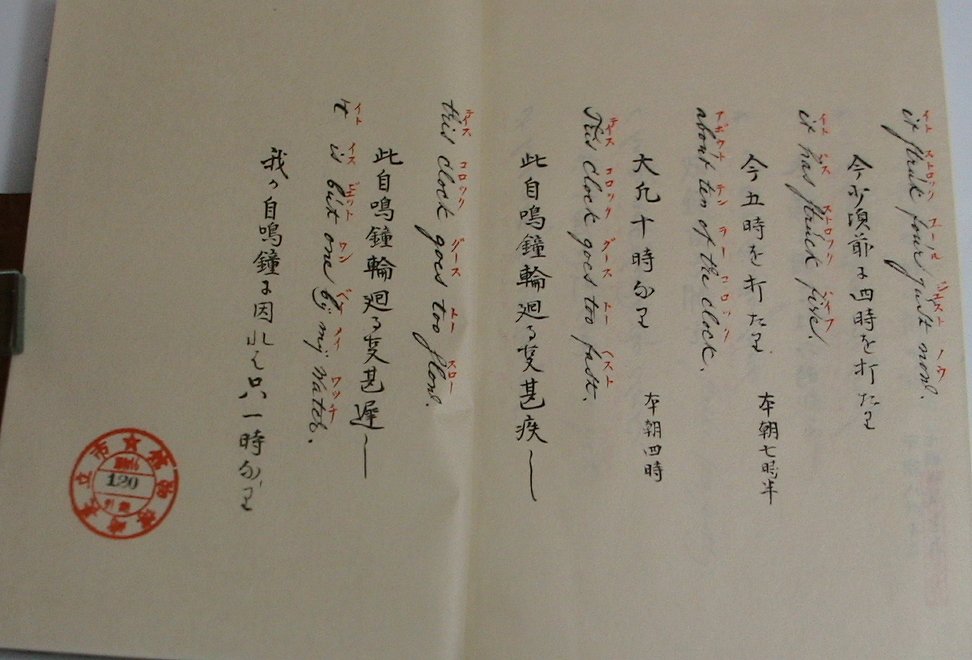 it struk four just now.
イト ストロック フール ジュスト ノウ
今少頃前ニ四時を打たり
it has struck five.
イト ハス ストロック ファイフ
今五時を打たり 本朝七時半
about ten of the clock.
アボウト テン ヲフ コロック
大凡十時なり 本朝四時
This clock goes too fast.
ディス コロック グース トー ヘスト
此自鳴鐘輪廻る事甚疾し
this clock goes too slow.
ディス コロック グース トー スロー
此自鳴鐘輪廻る事甚遅し
it is but one by my watch.
イト イス ビュット ワン バイ マイ ワッチ
我カ自鳴鐘ニ因れは只一時なり
120